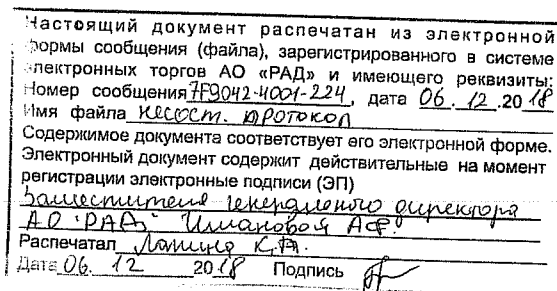 Настоящий документ распечатан из электронной
формы сообщения (файла), зарегистрированного в системе
электронных торгов АО «РАД» и имеющего реквизиты:
Номер сообщения 7F9042-4001-224, дата 06.12.2018
Имя файла несост. протокол
Содержимое документа соответствует его электронной форме.
Электронный документ содержит действительные на момент
регистрации электронные подписи (ЭП)
Заместителя генерального директора
АО "РАД" Имановой А.Ф.
Распечатал Лапина К.А.
Дата 06. 12 2018 Подпись